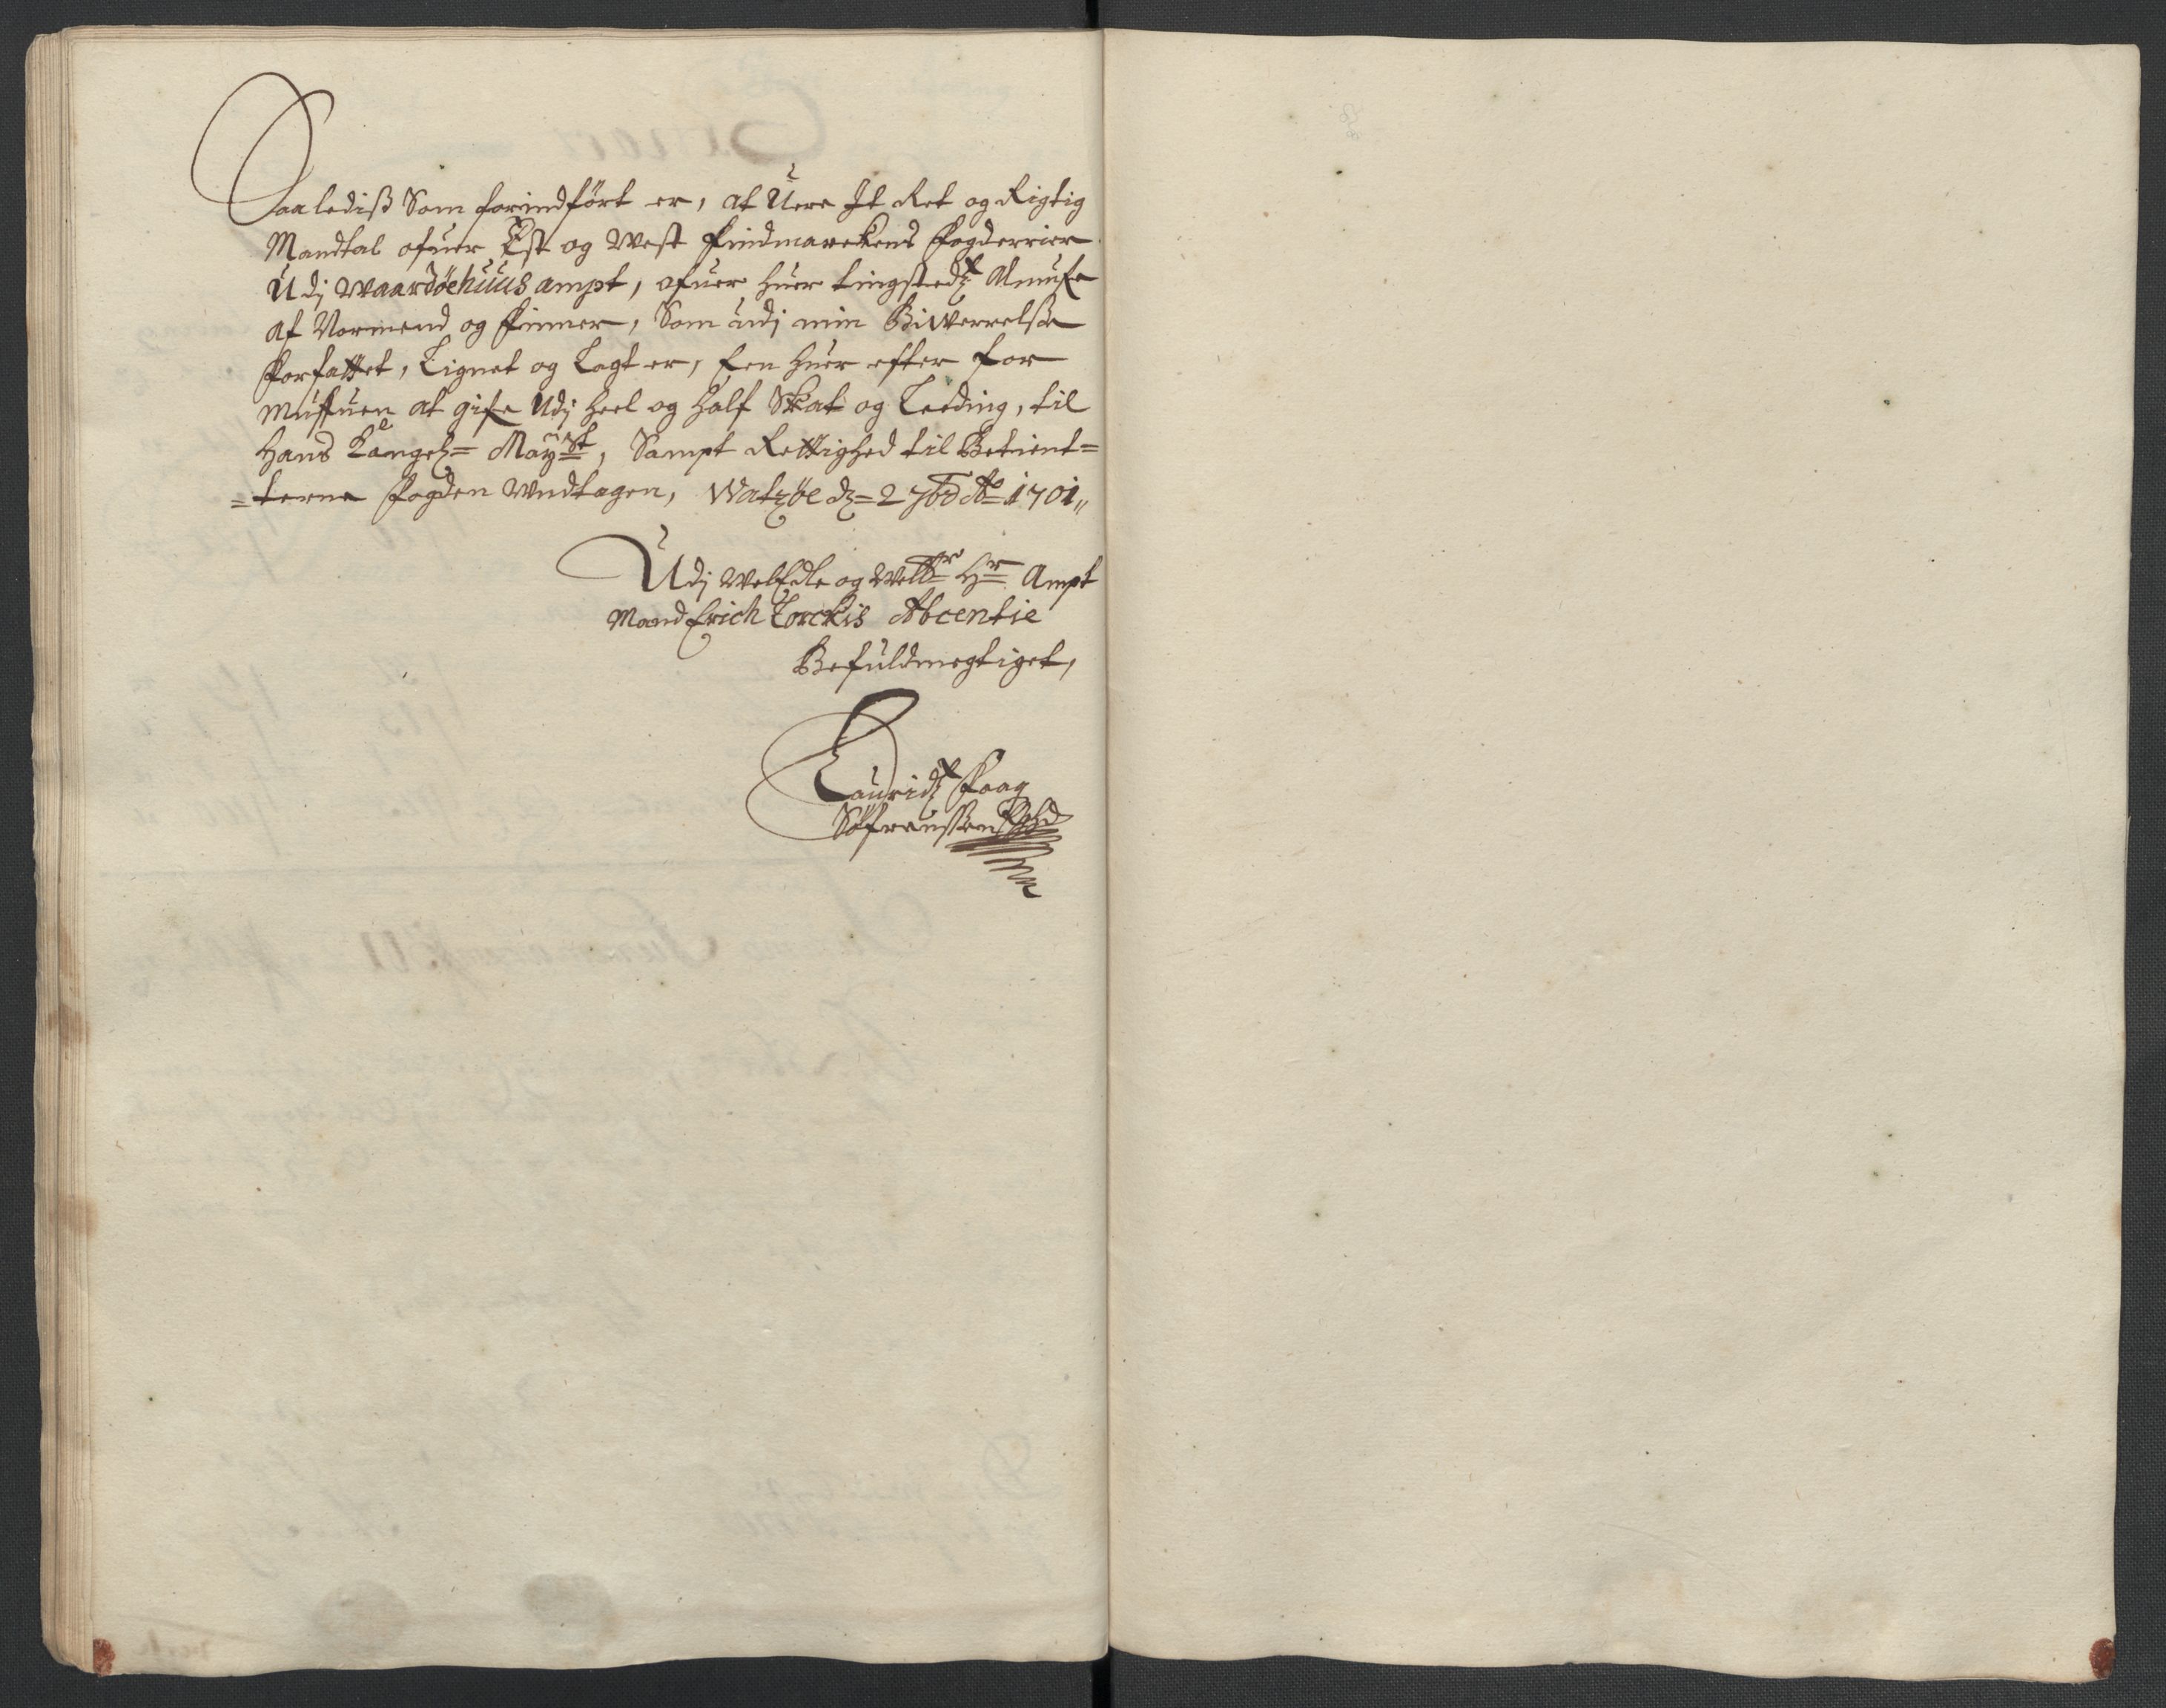 Saalediss Som forindført er, at Uere It Ret og Rigtig
Mandtal ofuer Øst og West Findmarckens fogderrier
Udj Waardöehuus ampt, ofuer huer tingstedz Almufe
af Normend og finner, Som udj min Biwerrelse
forfattet, Lignet og Lagt er, Een huer efter for
muffuen at gife Udj heel og half Skat og Leeding, til
Hans Kongel= May=st=, Sampt Rettighed til Betient=
=terne fogden Undtagen, Watzöe dz= 2 7br Ao= 1701,,
Udj WelEdle og Welbr= Hr= Ampt
Mand Erich Lorckis Abcentie
Befuldmegtiget,
Lauridz faag
Söfrenssen